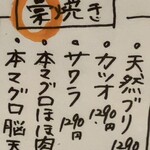 藁焼き
・天然ブリ 1290円
・カツオ 1290円
・サワラ 1290円
・本マグロほほ肉
・本マグロ脳天